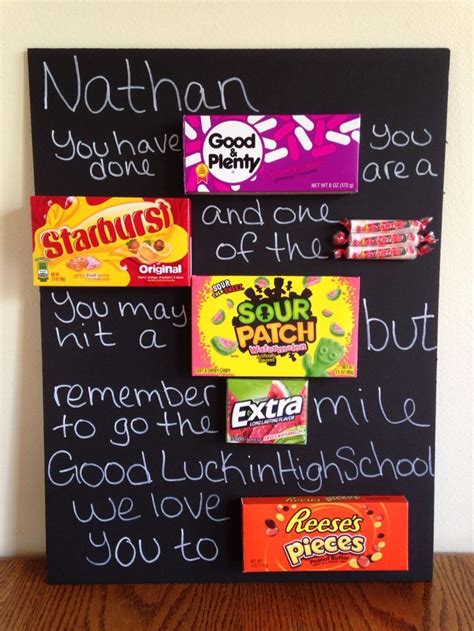 Nathan
You have done Good & Plenty You are a
NET WT 6 OZ (170 g)
Starburst and one of the
Original
You may hit a SOUR PATCH Watermelon but
SOUR THEN SWEET
remember to go the Extra mile
LONG LASTING FLAVOR
Good Luck in High School
we love you to REESE'S PIECES
Peanut Butter